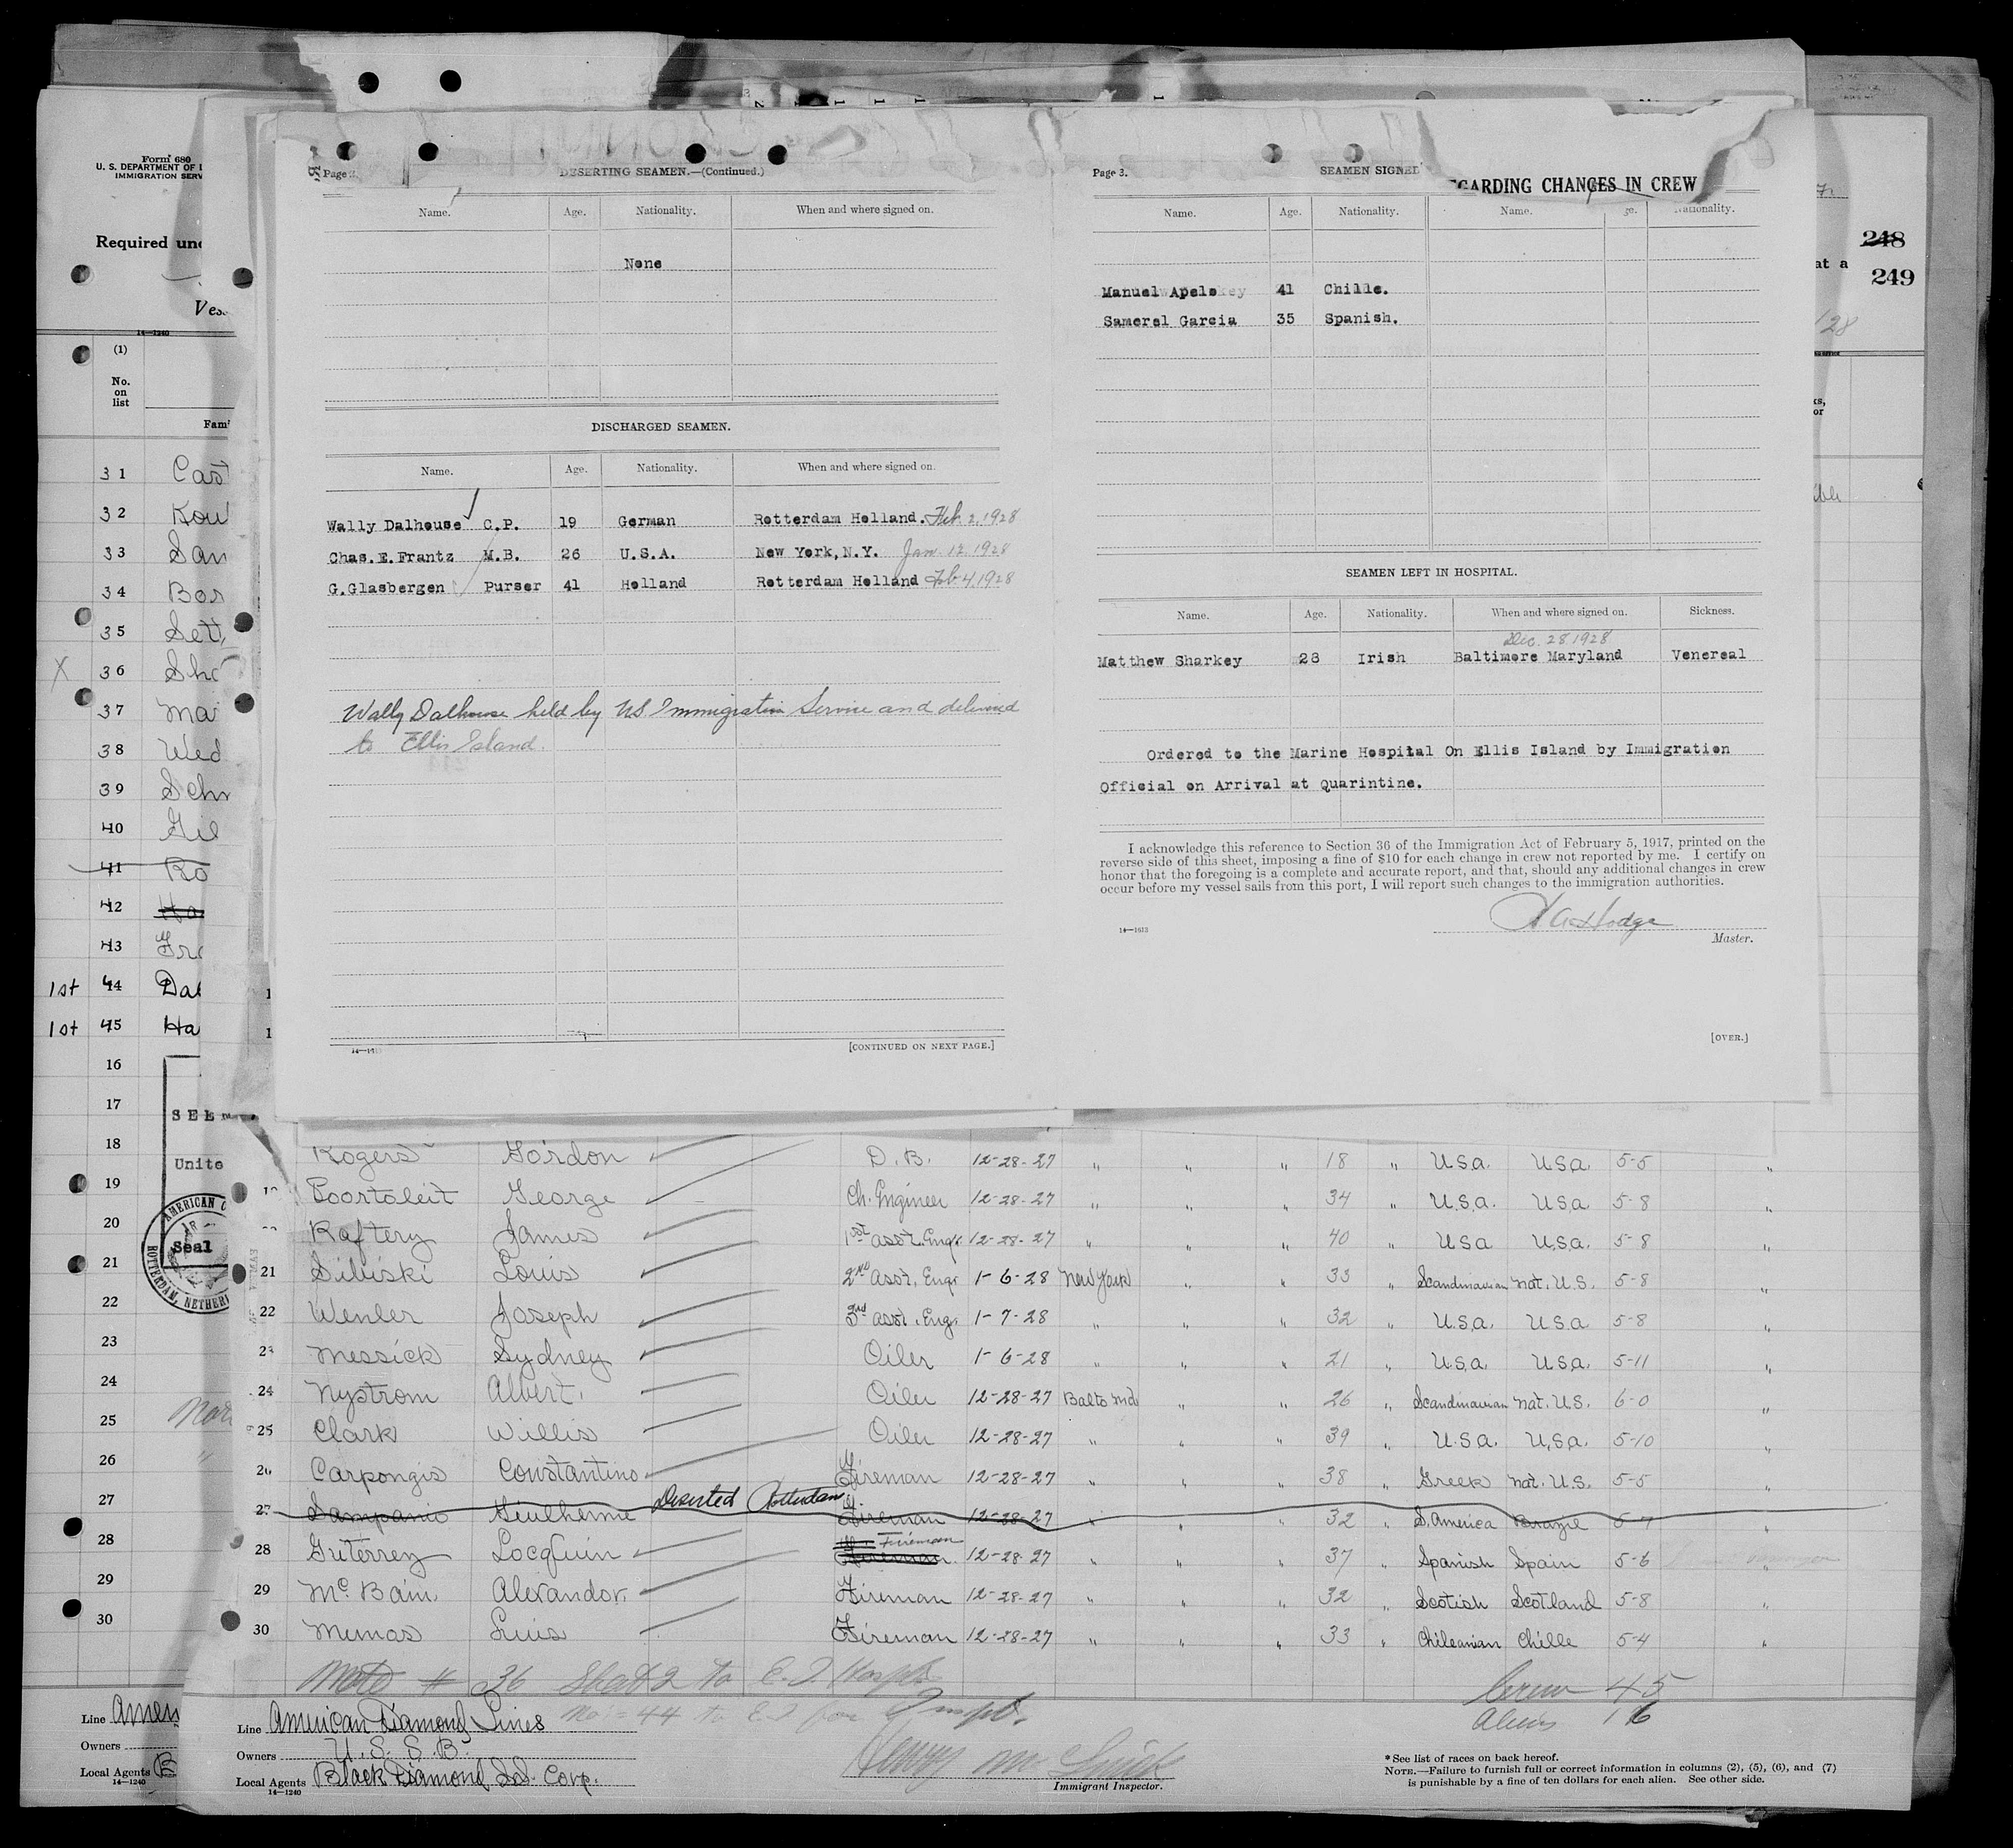 Form 680
U. S. DEPARTMENT OF
IMMIGRATION SERV
Required und
Ves
14—1240
(1)
No.
on
list
Fam
31 Cast
32 Kou
33 San
34 Bor
35 Sett
X 36 Sho
37 Mai
38 Wed
39 Schr
40 Gil
41 Ro
42 Ha
43 Fra
1st 44 Dal
1st 45 Ha
16
17
18
19
20
21
22
23
24
25
26
27
28
29
30
SEEN
Unite
AMERICAN C
Seal
ROTTERDAM, NETHER
248
at a 249
/28
Page 2.
DESERTING SEAMEN.—(Continued.)
Name. Age. Nationality. When and where signed on.
None
DISCHARGED SEAMEN.
Name. Age. Nationality. When and where signed on.
Wally Dalhouse C.P. 19 German Rotterdam Holland. Feb. 2, 1928
Chas.E.Frantz M.B. 26 U.S.A. New York,N.Y. Jan. 12. 1928
G.Glasbergen Purser 41 Holland Rotterdam Holland Feb 4, 1928
Wally Dalhouse held by US Immigration Service and delivered
to Ellis Island.
14—1613
[CONTINUED ON NEXT PAGE.]
Page 3.
SEAMEN SIGNED
GARDING CHANGES IN CREW
Name. Age. Nationality. Name. ge. Nationality.
Manuel Apelo 41 Chille.
Samerel Garcia 35 Spanish.
SEAMEN LEFT IN HOSPITAL.
Name. Age. Nationality. When and where signed on. Sickness.
Dec. 28 1928
Matthew Sharkey 28 Irish Baltimore Maryland Venereal
Ordered to the Marine Hospital On Ellis Island by Immigration
Official on Arrival at Quarintine.
I acknowledge this reference to Section 36 of the Immigration Act of February 5, 1917, printed on the
reverse side of this sheet, imposing a fine of $10 for each change in crew not reported by me. I certify on
honor that the foregoing is a complete and accurate report, and that, should any additional changes in crew
occur before my vessel sails from this port, I will report such changes to the immigration authorities.
Hodge
14—1613
Master.
[OVER.]
Rogers Gordon D.B. 12-28-27 " " " 18 " U.S.A. U.S.A. 5-5 "
Poortoleit George Ch. Engineer 12-28-27 " " " 34 " U.S.A. U.S.A. 5-8 "
Raftery James 1st asst. Engr 12-28-27 " " " 40 " U.S.A. U.S.A. 5-8 "
21 Sibiski Louis 2nd asst. Engr 1-6-28 New York " " 33 " Scandinavian Nat. U.S. 5-8 "
22 Wenler Joseph 3rd asst. Engr 1-7-28 " " " 32 " U.S.A. U.S.A. 5-8 "
23 Messick Sydney Oiler 1-6-28 " " " 21 " U.S.A. U.S.A. 5-11 "
24 Nystrom Albert. Oiler 12-28-27 Balto Md " " 26 " Scandinavian Nat. U.S. 6-0 "
25 Clark Willis Oiler 12-28-27 " " " 39 " U.S.A. U.S.A. 5-10 "
26 Carpongis Constantino Fireman 12-28-27 " " " 38 " Greek Nat. U.S. 5-5 "
Deserted Rotterdam
27 Sampanio Giulherme Fireman 12-28-27 " " " 32 " S. America Brazil 5-7 "
28 Guterrez Locquin Fireman 12-28-27 " " " 37 " Spanish Spain 5-6 "
29 McBain. Alexandor. Fireman 12-28-27 " " " 32 " Scotish Scotland 5-8 "
30 Munos Luis Fireman 12-28-27 " " " 33 " Chileanian Chille 5-4 "
Note # 36 Sheet 2 to E.I. Hospl.
Crew 45
No- 44 to E.I. for Inspt.
Aliens 16
Line Amer
Owners
Local Agents B
14—1240
Line American Diamond Lines
Owners U.S.S.B.
Local Agents Black Diamond SS. Corp.
14—1240
Henry
Immigrant Inspector.
*See list of races on back hereof.
NOTE.—Failure to furnish full or correct information in columns (2), (5), (6), and (7)
is punishable by a fine of ten dollars for each alien. See other side.